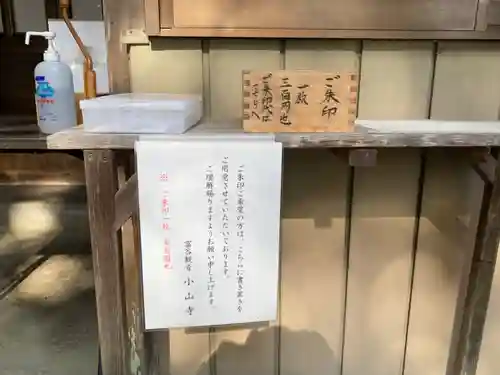 ご朱印
一教
三百円也
ご朱印代は
こちらへ
ご朱印ご希望の方は、こちらに書き置きを
ご用意させていただいております。
ご理解賜りますようお願い申し上げます。
富谷観音 小山寺
※ ご朱印一枚 三百円也